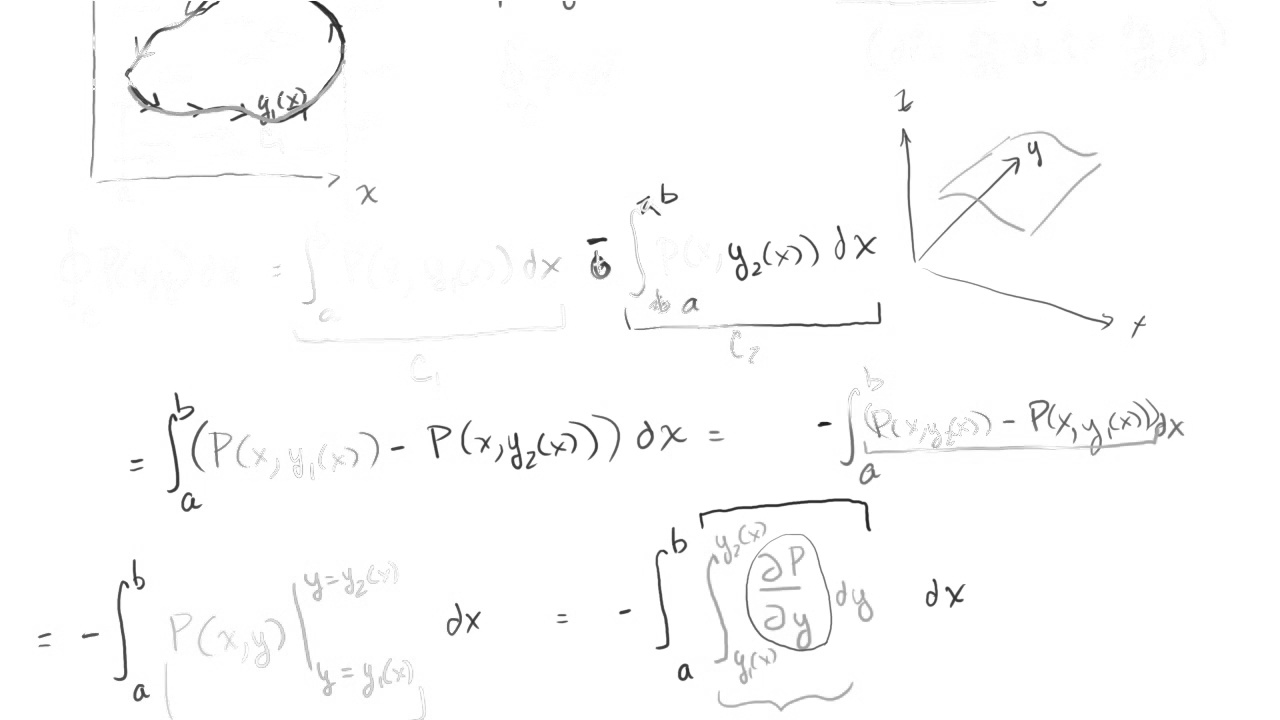 y₁(x)
x
z
y
x
= ∫ₐ P(x, y₁(x)) dx - ∫ₐᵇ P(x, y₂(x)) dx
C₁
C₂
= ∫ₐᵇ (P(x, y₁(x)) - P(x, y₂(x))) dx = - ∫ₐᵇ (P(x, y₂(x)) - P(x, y₁(x))) dx
= - ∫ₐᵇ P(x,y) |_{y = y₁(x)}^{y = y₂(x)} dx = - ∫ₐᵇ ∫_{y₁(x)}^{y₂(x)} ∂P/∂y dy dx